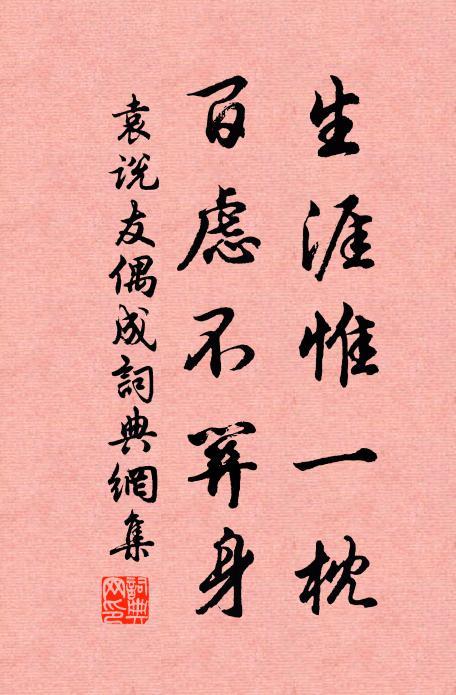 生涯惟一枕
百慮不關身
袁說友偶成詞典網集
詞典
網印